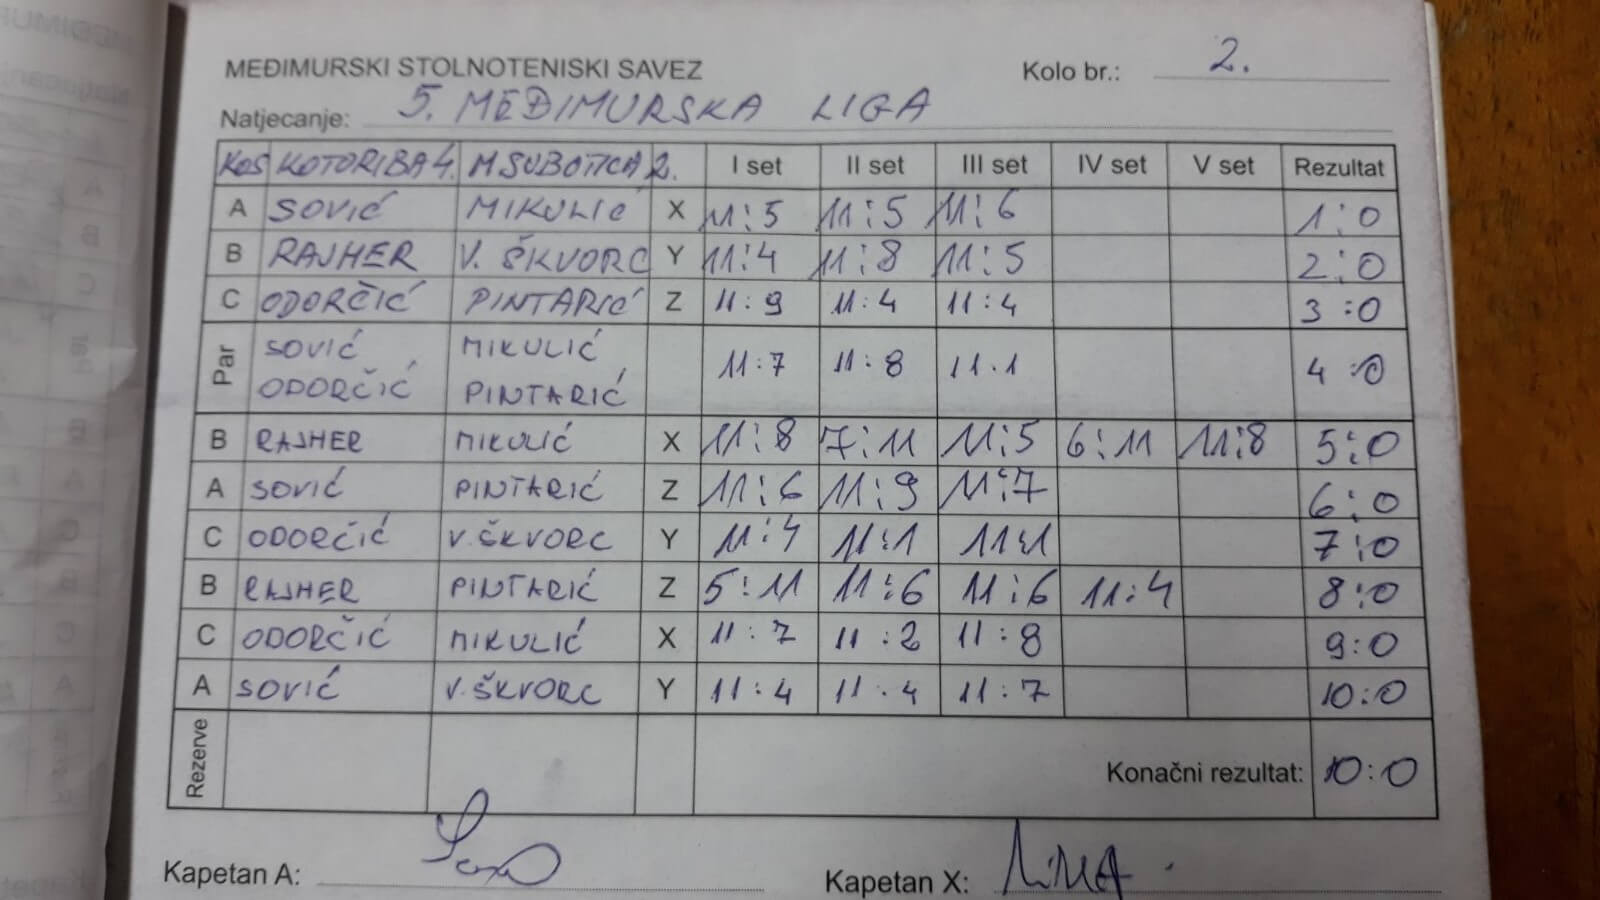 MEĐIMURSKI STOLNOTENISKI SAVEZ Kolo br.: 2.
Natjecanje: 5. MEĐIMURSKA LIGA
KOS KOTORIBA 4. M SUBOTICA 2. I set II set III set IV set V set Rezultat
A SOVIĆ MIKULIĆ X 11:5 11:5 11:6 1:0
B RAJHER V. ŠKVORC Y 11:4 11:8 11:5 2:0
C ODORČIĆ PINTARIĆ Z 11:9 11:4 11:4 3:0
Par SOVIĆ MIKULIĆ 11:7 11:8 11.1 4:0
ODORČIĆ PINTARIĆ
B RAJHER MIKULIĆ X 11:8 7:11 11:5 6:11 11:8 5:0
A SOVIĆ PINTARIĆ Z 11:6 11:9 11:7 6:0
C ODORČIĆ V. ŠKVORC Y 11:4 11:1 11:1 7:0
B RAJHER PINTARIĆ Z 5:11 11:6 11:6 11:4 8:0
C ODORČIĆ MIKULIĆ X 11:7 11:2 11:8 9:0
A SOVIĆ V. ŠKVORC Y 11:4 11.4 11:7 10:0
Rezerve Konačni rezultat: 10:0
Kapetan A: Kapetan X: